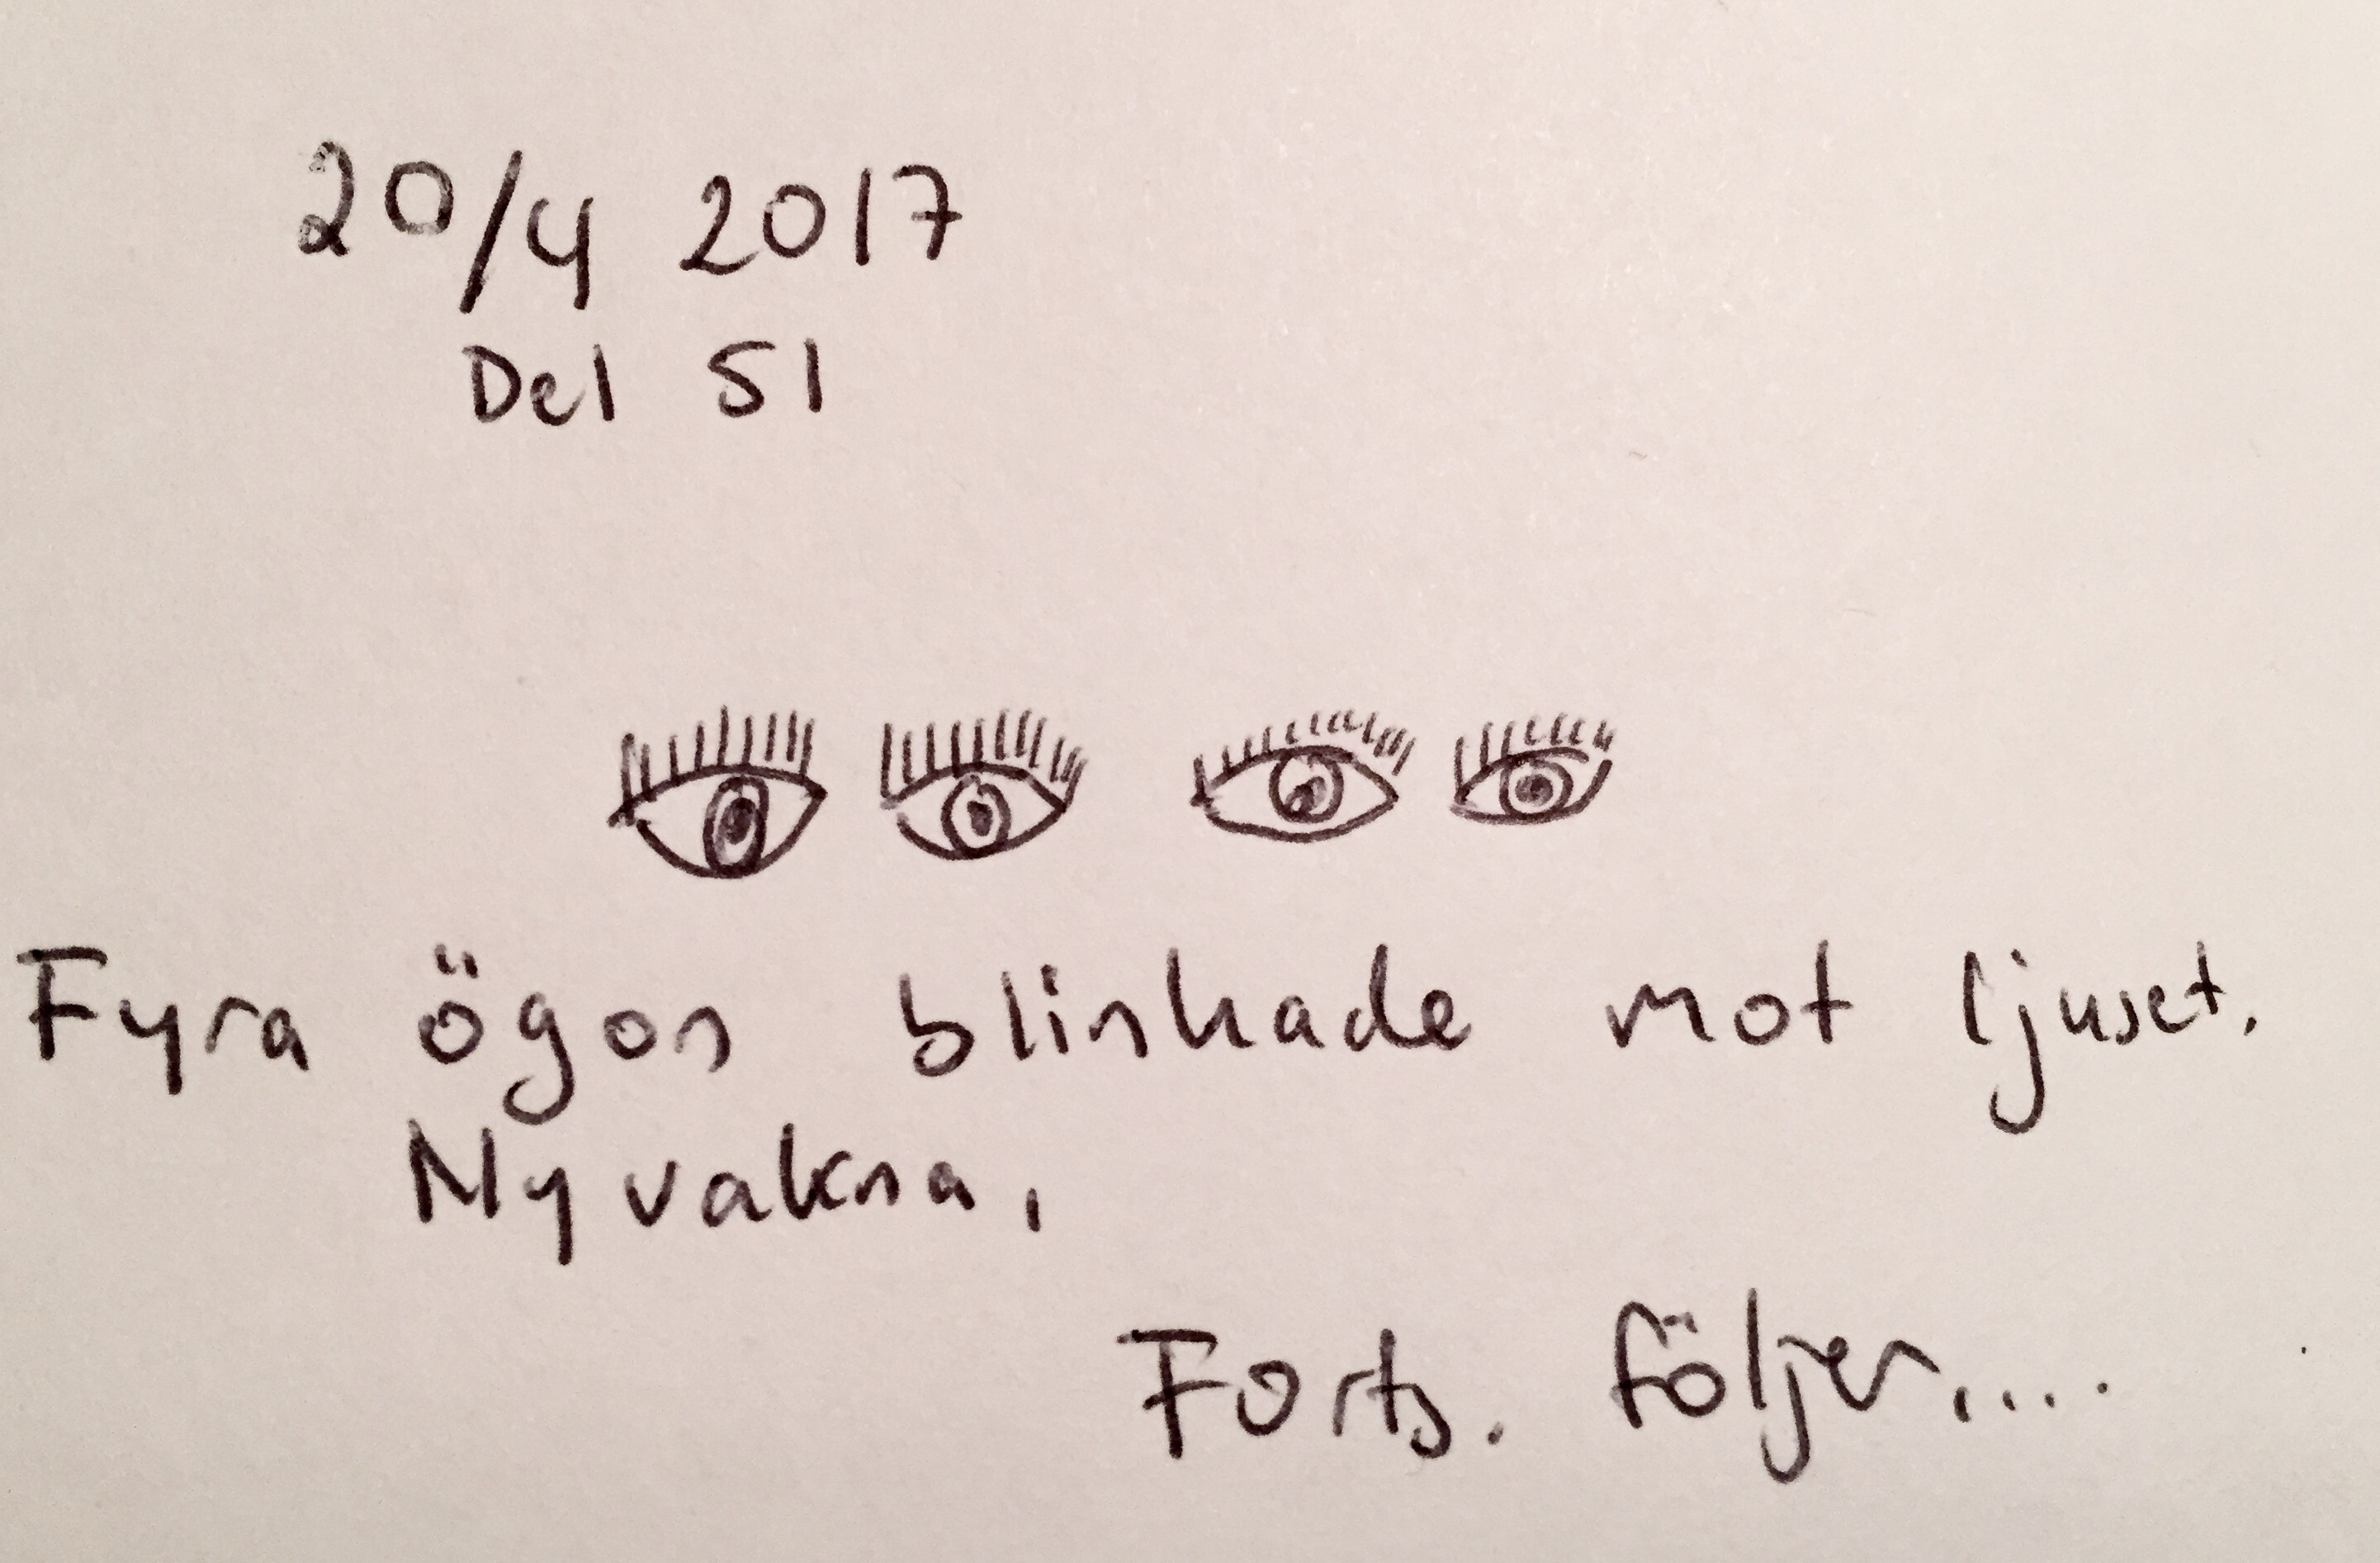 20/4 2017
Del 51
Fyra ögon blinkade mot ljuset.
Nyvakna.
Forts. följer....